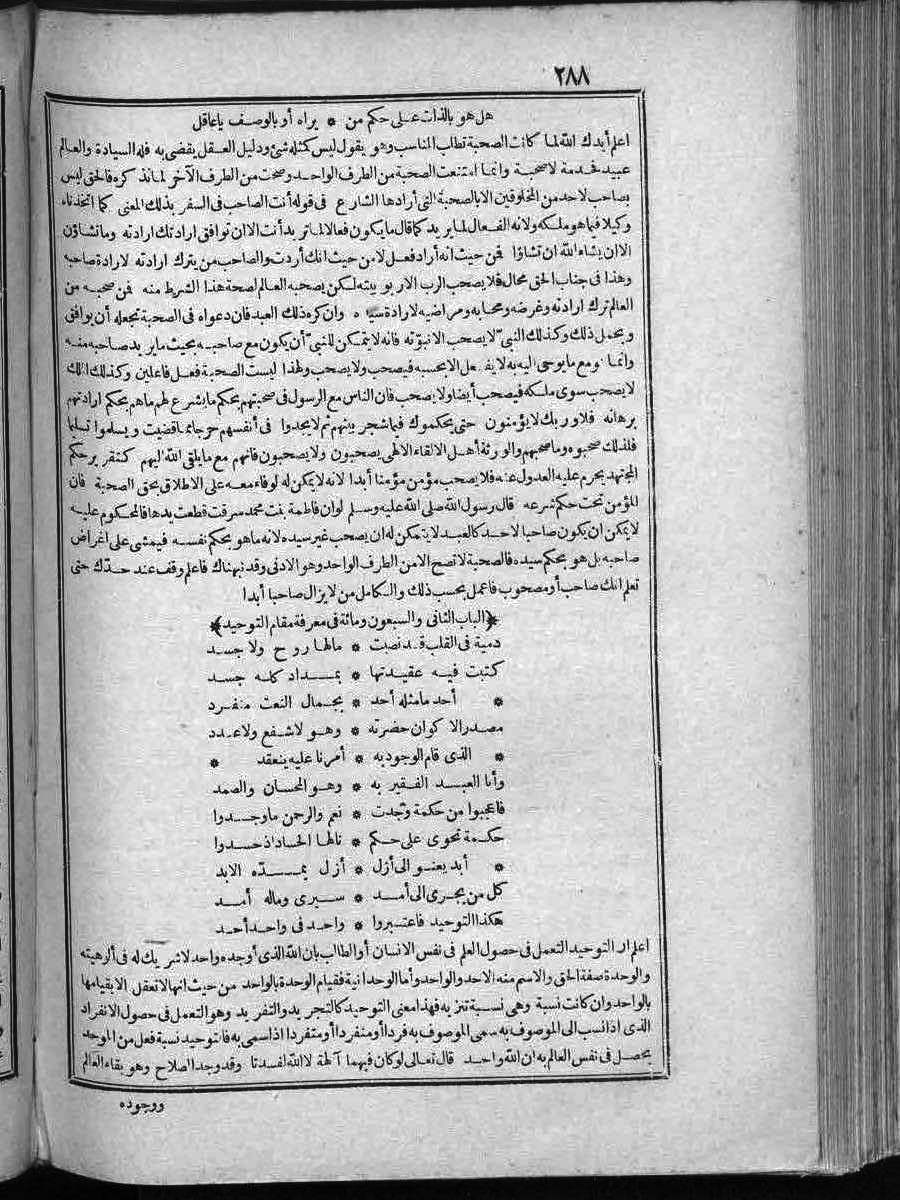 ٢٨٨
هل هو بالذات على حكم من * يراه أو بالوصف يا عاقل
اعلم أيدك الله لما كانت الصحبة تطلب المناسب وهو يقول ليس كمثله شئ ودليل العقل يقضى به فله السيادة والعالم
عبيد فخدمة لا صحبة وانما امتنعت الصحبة من الطرف الواحد وصحت من الطرف الآخر لما نذكره فالحق ليس
بصاحب لاحد من المخلوقين الا بالصحبة التى أرادها الشارع فى قوله أنت الصاحب فى السفر بذلك المعنى كما اتخذناه
وكيلا فيما هو ملكه ولانه الفعال لما يريد كما قال ما يكون فعالا لما تريد أنت الا ان توافق ارادتك ارادته وما تشاؤن
الا ان يشاء الله ان تشاؤا فمن حيث انه أراد فعل لا من حيث انك أردت والصاحب من يترك ارادته لارادة صاحبه
وهذا فى جناب الحق محال فلا يصحب الرب الا ربوبيته لكن يصحبه العالم لصحة هذا الشرط منه فمن صحبه من
العالم ترك ارادته وغرضه ومحابه ومراضيه لارادة وان كره ذلك العبد فان دعواه فى الصحبة تجعله أن يوافق
ويحمل ذلك وكذلك النبى لا يصحب الا نبوته فانه لا يتمكن للنبى أن يكون مع صاحبه بحيث ما يريد صاحبه منه
وانما ومع ما يوحى اليه به لا يفعل الا بحسبه فيصحب ولا يصحب ولهذا ليست الصحبة فعل فاعلين وكذلك الملك
لا يصحب سوى ملكه فيصحب أيضا ولا يصحب فان الناس مع الرسول فى صحبتهم بحكم ما يشرع لهم ما هم بحكم ارادتهم
برهانه فلا وربك لا يؤمنون حتى يحكموك فيما شجر بينهم ثم لا يجدوا فى أنفسهم حرجا مما قضيت ويسلموا تسليما
فلذلك صحبوه وما صحبهم والورثة أهل الالقاء الالهى يصحبون ولا يصحبون فانهم مع ما يلقى الله اليهم كتقرير حكم
المجتهد يحرم عليه العدول عنه فلا يصحب مؤمن مؤمنا أبدا لانه لا يمكن له لوفاء معه على الاطلاق بحق الصحبة فان
المؤمن تحت حكم شرعه قال رسول الله صلى الله عليه وسلم لو ان فاطمة بنت محمد سرقت قطعت يدها فالمحكوم عليه
لا يمكن ان يكون صاحبا لاحد كالعبد لا يتمكن له ان يصحب غير سيده لانه ما هو بحكم نفسه فيمشى على اغراض
صاحبه بل هو بحكم سيده فالصحبة لا تصح الا من الطرف الواحد وهو الادنى وقد نبهناك فاعلم وقف عند حدك حتى
تعلم انك صاحب أو مصحوب فاعمل بحسب ذلك والكامل من لا يزال صاحبا أبدا
﴿الباب الثانى والسبعون ومائة فى معرفة مقام التوحيد﴾
دمية فى القلب قد نصبت * مالها روح ولا جسد
كتبت فيه عقيدتها * بمداد كله جسد
* أحد ما مثله أحد * بجمال النعت منفرد
مصدر الاكوان حضرته * وهو لا شفع ولا عدد
* الذى قام الوجود به * أمرنا عليه ينعقد *
وأنا العبد الفقير به * وهو المحسان والصمد
فاعجبوا من حكمة وجدت * نعم والرحمن ما وجدوا
حكمة تحوى على حكم * نالها الحاد اذ حسدوا
* أبد يعنو الى أزل * أزل يمده الابد
كل من يجرى الى أمد * سيرى وماله أمد
هكذا التوحيد فاعتبروا * واحد فى واحد أحد
اعلم ان التوحيد التعمل فى حصول العلم فى نفس الانسان أو الطالب بان الله الذى أوجده واحد لا شريك له فى ألوهيته
والوحدة صفة الحق والاسم منه الاحد والواحد وأما الوحدانية فقيام الوحدة بالواحد من حيث انها لا تعقل الا بقيامها
بالواحد وان كانت نسبة وهى نسبة تنزيه فهذا معنى التوحيد كالتجريد والتفريد وهو التعمل فى حصول الانفراد
الذى اذا نسب الى الموصوف به سمى الموصوف به فردا أو منفردا أو متفردا اذا سمى به فالتوحيد نسبة فعل من الموحد
يحصل فى نفس العالم به ان الله واحد قال تعالى لو كان فيهما آلهة الا الله لفسدتا وقد وجد الصلاح وهو بقاء العالم
ووجوده